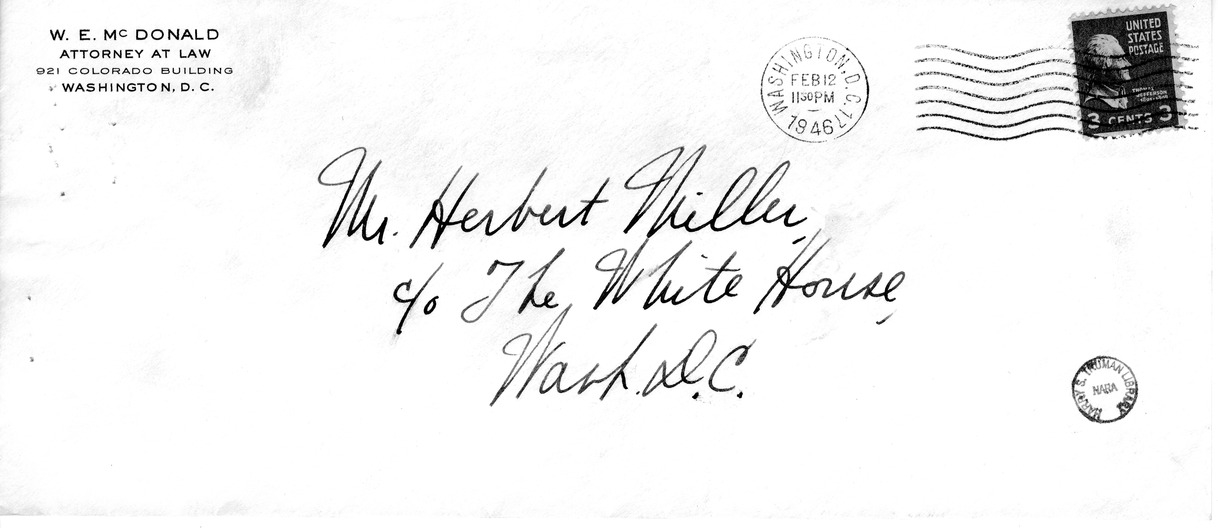 W. E. Mc DONALD
ATTORNEY AT LAW
921 COLORADO BUILDING
WASHINGTON, D. C.
WASHINGTON, D. C. 17
FEB 12
11 30 PM
1946
UNITED
STATES
POSTAGE
THOMAS
JEFFERSON
3 CENTS 3
Mr. Herbert Miller,
c/o The White House,
Wash. D.C.
HARRY S. TRUMAN LIBRARY
NARA